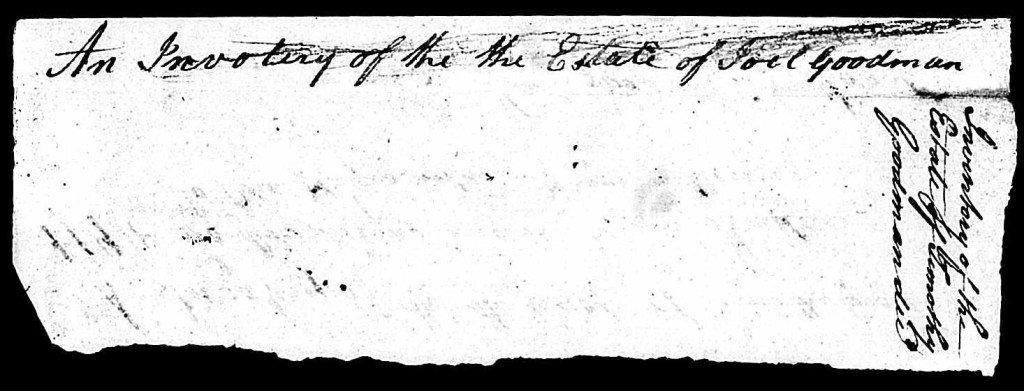 An Invotery of the the Estate of Joel Goodman
Inventory of the
Estate of Timothy
Goodman decd